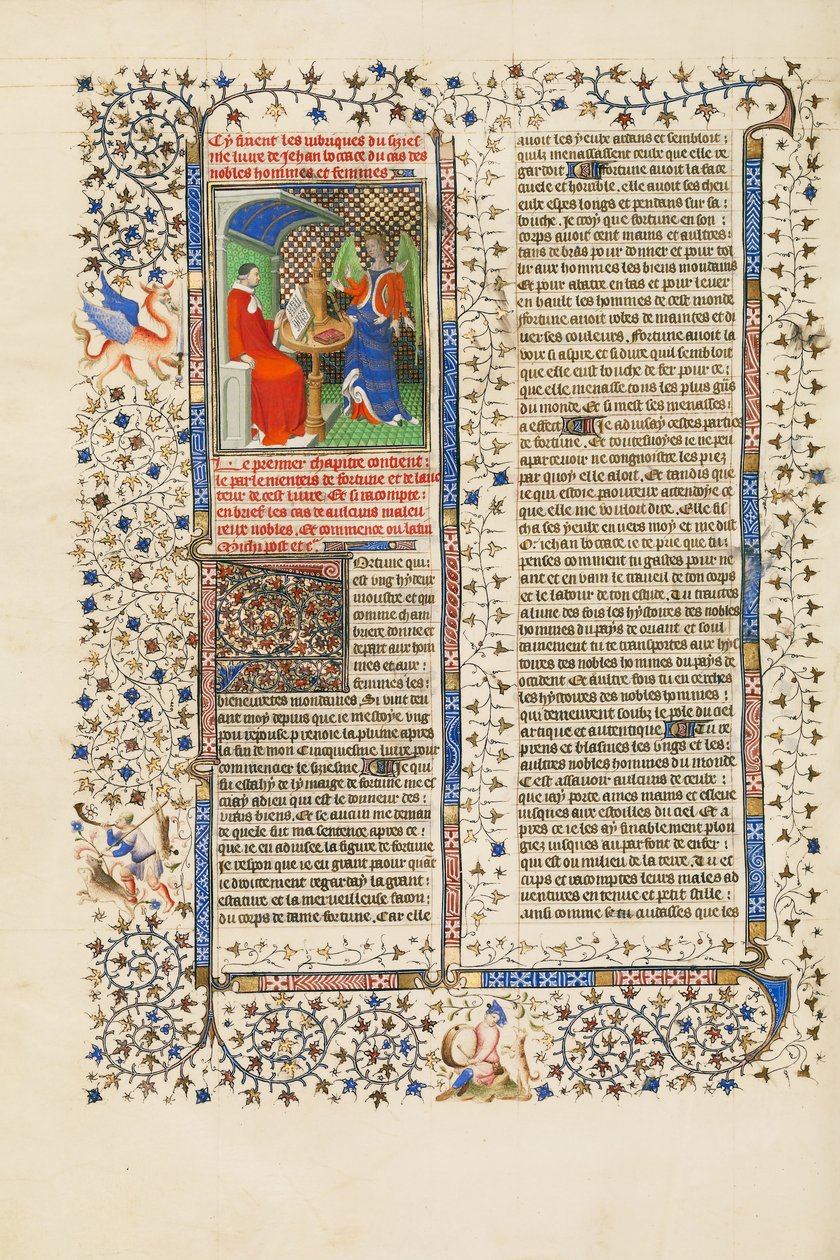 Cy finent les rubriques du sixies
me livre de Jehan boccace du cas des
nobles hommes et femmes
Le premier chapitre contient:
le parlementeis de fortune et de lauc
teur de cest livre. Et si racompte:
en brief les cas de aulcuns maleu
reux nobles. Et commence ou latin
Michi post et cͣ
Fortune qui:
est ung hydeux
monstre et qui
comme cham
briere donne et
depart aux hom
mes et aux:
femmes les:
bieneuretes mondaines. Si vint dev
ant moy depuis que ie mestoye ung
pou repouse. prenoie la plume apres
la fin de mon Cinquiesme livre pour
commencer le siziesme Je qui
fu estahy de la marge de fortune me
criay adieu qui est le donneur des:
vrais biens. Et se aucun me deman
de quele fut ma sentence apres ce:
que ie eu advisee la figure de fortune
ie respon que ie eu grant paour quāt
ie droictement regarday la grant:
estature et la merveilleuse facon:
du corps de dame fortune. Car elle
avoit les yeulx ardans et sembloit:
quilz menassassent ceulx que elle re
gardoit Fortune avoit la face
cruele et horrible. elle avoit ses chev
eulx espes longs et pendans sur sa:
bouche. Je croy que fortune en son:
corps avoit cent mains et aultres:
tans de bras pour donner et pour tol
lir aux hommes les biens mondains
Et pour abatre en bas et pour lever
en hault les hommes de cest monde
Fortune avoit robes de maintes et di
verses couleurs. Fortune avoit la
voix si aspre et si dure quil sembloit
que elle eust bouche de fer pour ce:
que elle menasse tous les plus grās
du monde. Et si mest ses menasses:
a effect Je advisay cestes parties
de fortune. Et toutesvoyes ie ne peu
apercevoir ne congnoistre les piez
par quoy elle aloit. Et tandis que
ie qui estoie paoureux attendoye ce
que elle me vouloit dire. Elle fi
cha ses yeulx envers moy et me dist
O: iehan boccace ie te prie que tu:
penses comment tu gastes pour ne
ant et en vain le traveil de ton corps
et le labour de ton estude. Tu traictes
a lune des fois les hystoires des nobles
hommes du pays de oriant et soub
dainement tu te transportes aux hys
toires des nobles hommes du pays de
occident. Et aultre fois tu encerches
les hystoires des nobles hommes:
qui demeurent soubz le pole du ciel
artique et autentique. Tu re
prens et blasmes les ungs et les:
aultres nobles hommes du monde
Cest assavoir aulcuns de ceulx:
que iay porte a mes mains et esleve
iusques aux estoilles du ciel. Et a
pres ce ie les ay finablement plon
giez iusques au parfont de enfer:
qui est ou milieu de la terre. Tu et
crips et racomptes leurs males ad
ventures en tenve et petit stille:
ainsi comme se tu cuidasses que les